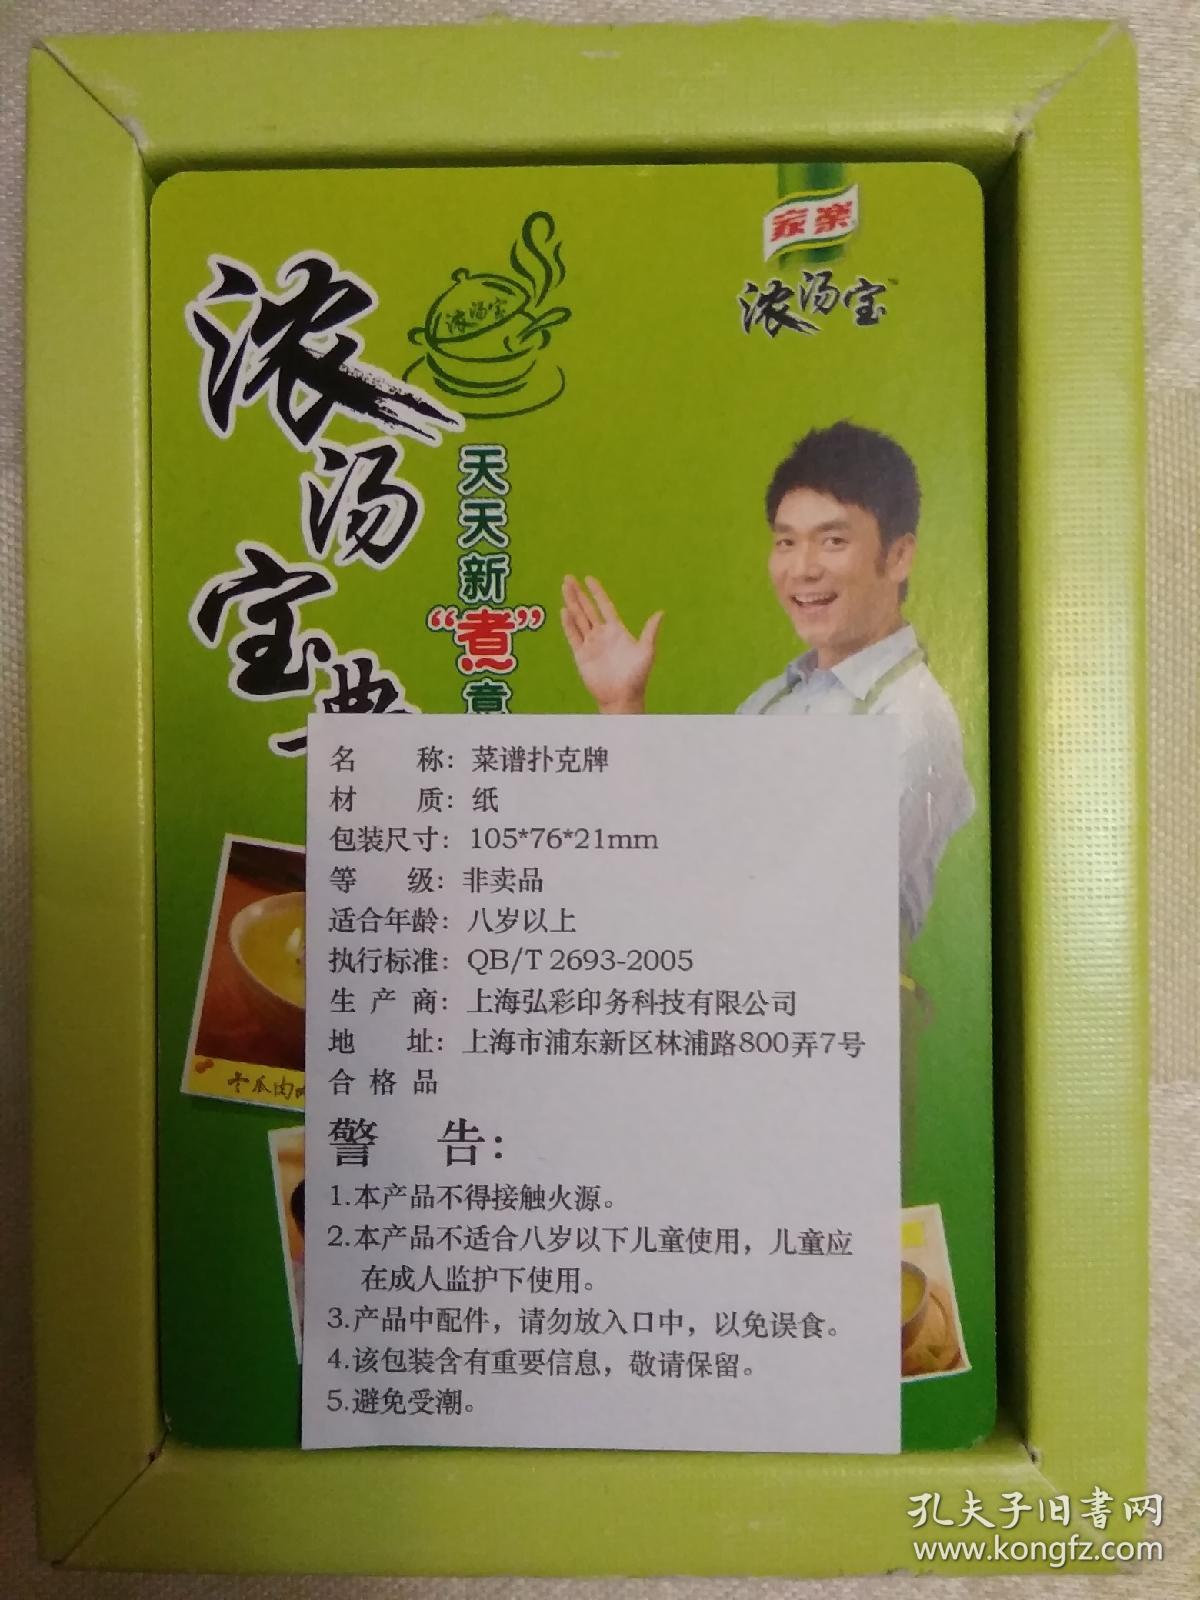 家樂
浓汤宝
浓汤宝
浓汤宝
天天新“煮”意
名 称：菜谱扑克牌
材 质：纸
包装尺寸：105*76*21mm
等 级：非卖品
适合年龄：八岁以上
执行标准：QB/T 2693-2005
生 产 商：上海弘彩印务科技有限公司
地 址：上海市浦东新区林浦路800弄7号
合 格 品
警 告：
1.本产品不得接触火源。
2.本产品不适合八岁以下儿童使用，儿童应
在成人监护下使用。
3.产品中配件，请勿放入口中，以免误食。
4.该包装含有重要信息，敬请保留。
5.避免受潮。
冬瓜肉
孔夫子旧书网
www.kongfz.com